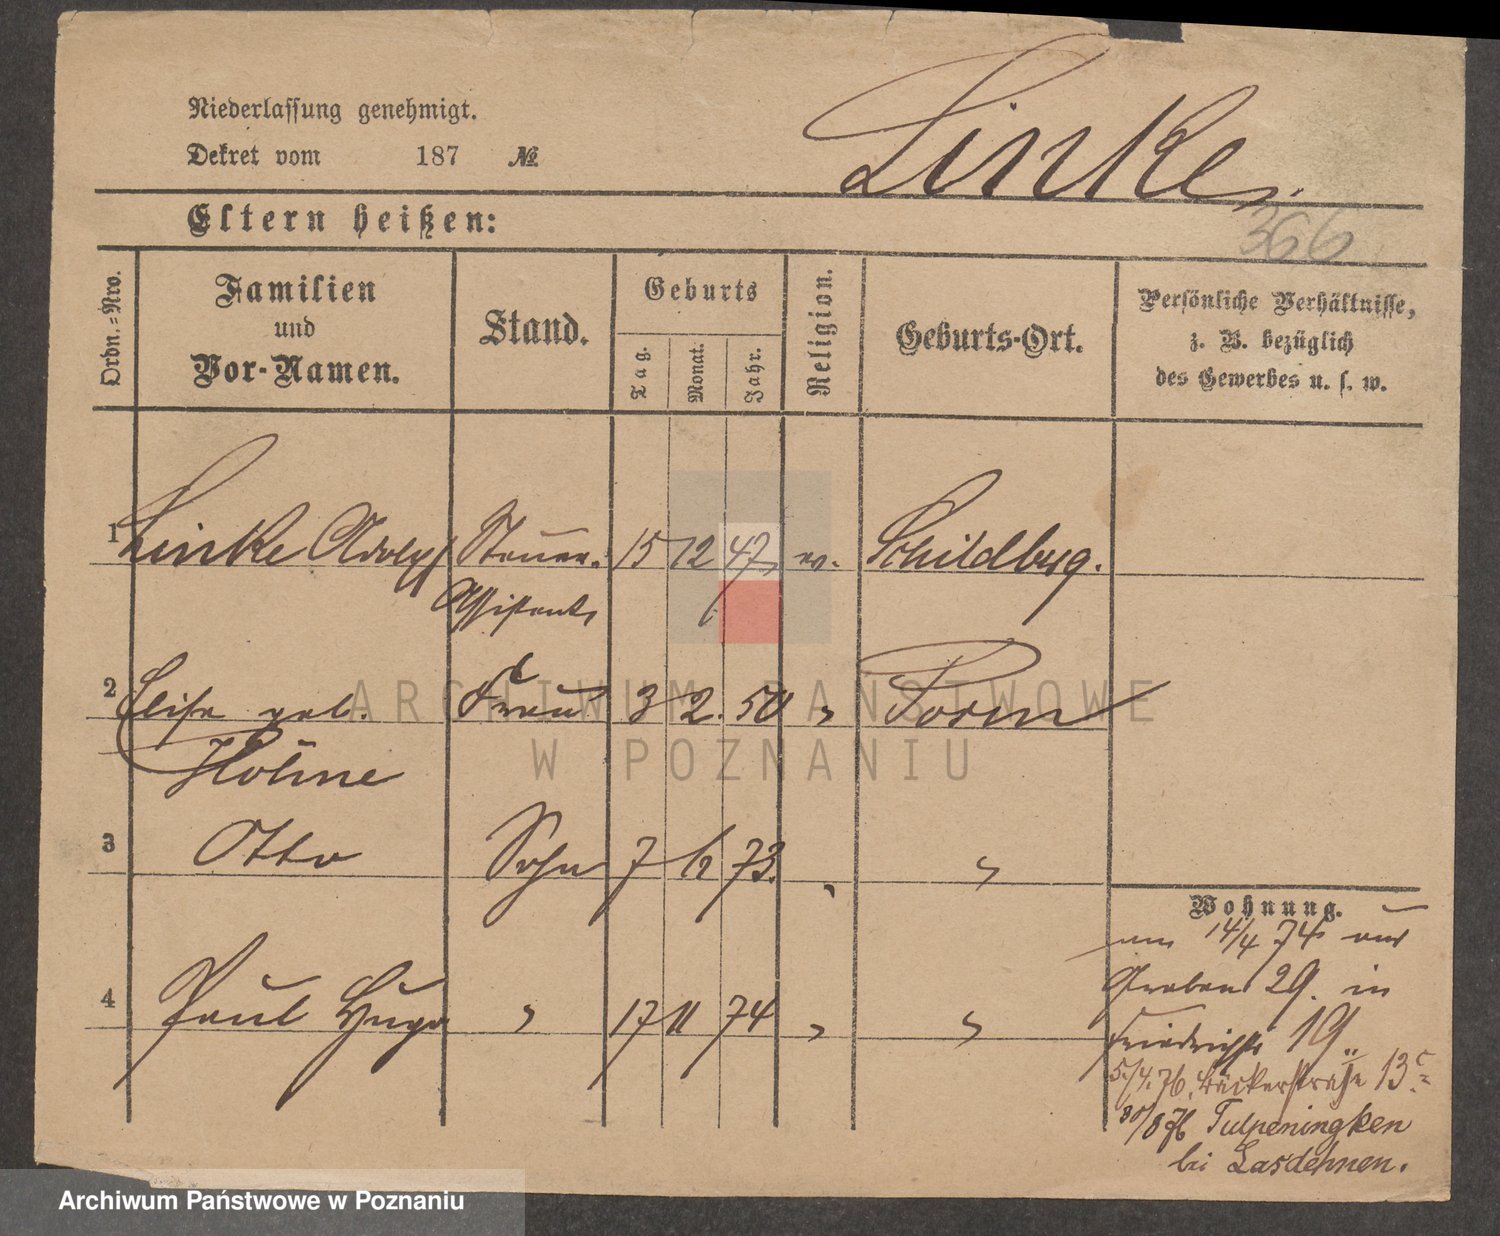 Niederlassung genehmigt.
Dekret vom 187 №
Linke.
Eltern heißen:
366
Ordn.-Nro.
Familien
und
Vor-Namen.
Stand.
Geburts
Tag.
Monat.
Jahr.
Religion.
Geburts-Ort.
Persönliche Verhältnisse,
z. B. bezüglich
des Gewerbes u. s. w.
1 Linke Adolph Steuer- 15 12 47 ev. Schildberg.
Assistent
2 Elise geb. Frau 3 2. 50 " Posen
Höhne
3 Otto Sohn 7 12 73. " "
4 Paul Hugo " 17 11 74 " "
Wohnung.
14/4 74 aus
Graben 29. in
Friedrichstr 19.
5./4. 76. Bäckerstraße 13c
30/8 76 Tulpeningken
bei Lasdehnen.
ARCHIWUM PAŃSTWOWE
W POZNANIU
Archiwum Państwowe w Poznaniu